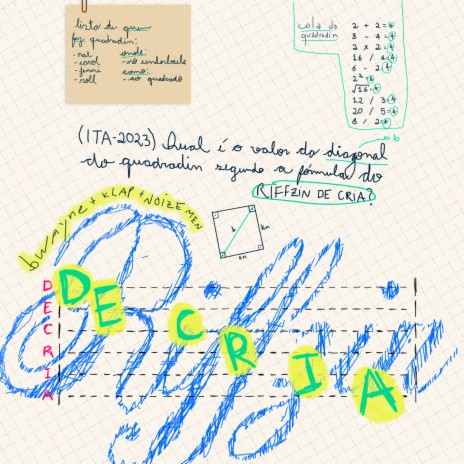 lista de quem
faz quadradin:
- nat
- carol
- fenni
- roll
onde:
- no underbaile
como:
- ao quadrado
cola do
quadradin
2 + 2 = 4
8 - 4 = 4
2 x 2 = 4
16 / 4 = 4
6 - 2 = 4
2² = 4
√16 = 4
12 / 3 = 4
20 / 5 = 4
8 / 2 = 4
(ITA-2023) Qual é o valor da diagonal
do quadradin segundo a fórmula do
RIFFZIN DE CRIA?
bWAYne + KLAP + NOIZE MEN
b
Riffzin
DE CRIA
D
E
C
R
I
A